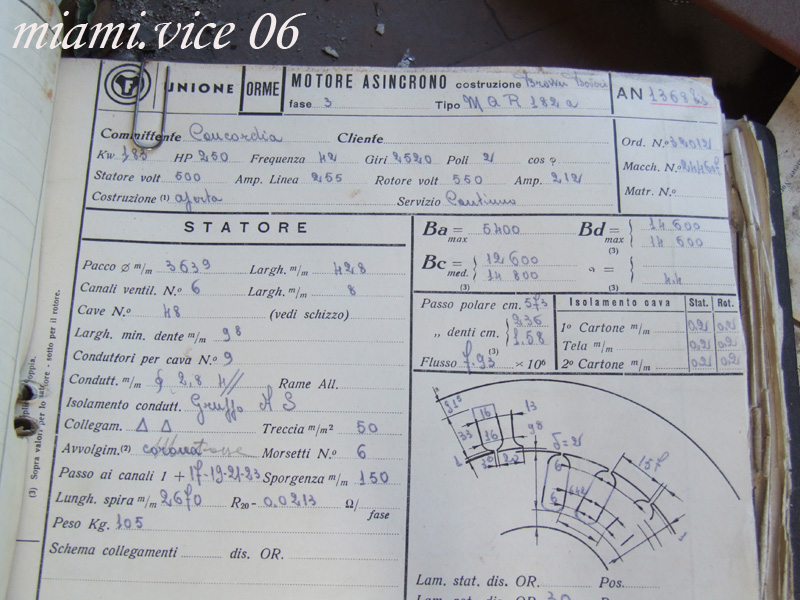 miami.vice 06
UNIONE ORME MOTORE ASINCRONO costruzione Brown Boveri
fase 3 Tipo MAR 182a
AN 1368
Committente Concordia Cliente
Kw 185 HP 250 Frequenza 42 Giri 2520 Poli 2 cos φ
Statore volt 500 Amp. Linea 255 Rotore volt 550 Amp. 212
Costruzione (1) aperta Servizio Continuo
Ord. N.º 32012
Macch. N.º
Matr. N.º
STATORE
Pacco ø m/m 3639 Largh. m/m 428
Canali ventil. N.º 6 Largh. m/m 8
Cave N.º 48 (vedi schizzo)
Largh. min. dente m/m 98
Conduttori per cava N.º 9
Condutt. m/m 2,8 4// Rame All.
Isolamento condutt. Gruppo AS
Collegam. Δ Δ Treccia m/m² 50
Avvolgim. (2) Morsetti N.º 6
Passo ai canali 1 + 17-19-21-23 Sporgenza m/m 150
Lungh. spira m/m 2670 R20 - 0,0213 Ω/fase
Peso Kg. 105
Schema collegamenti dis. OR.
(3) Sopra valori per lo statore - sotto per il rotore.
Ba max = 5400 Bd max (3) = 14 600
14 500
Bc med. (3) = 12 600
14 800
" = 44
Passo polare cm. 573
" denti cm. (3) 236
1.58
Flusso 7.93 × 10⁶
Isolamento cava Stat. Rot.
1º Cartone m/m 0,2 0,2
Tela m/m 0,2 0,2
2º Cartone m/m 0,2 0,2
515
16
13
33
16
98
157
6
6
Lam. stat. dis. OR. Pos.
30